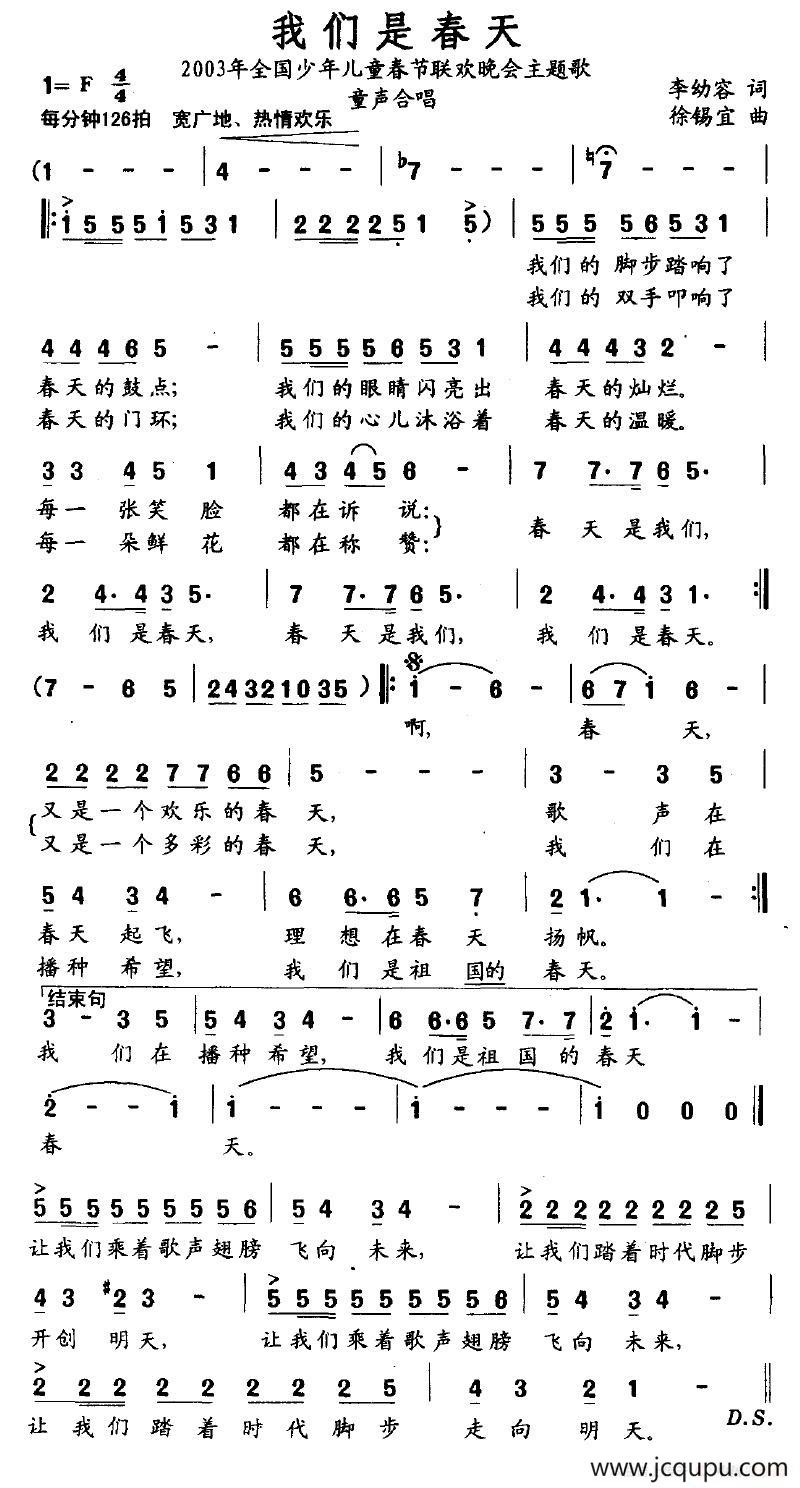 我们是春天
2003年全国少年儿童春节联欢晚会主题歌
1= F 4/4
童声合唱
李幼容 词
每分钟126拍 宽广地、热情欢乐
徐锡宜 曲
(1 - - - | 4 - - - | ♭7 - - - | ♮7 - - - |
‖: i 5 5 5 i 5 3 1 | 2 2 2 2 5 1 5 ) | 5 5 5 5 6 5 3 1 |
我们的 脚步踏响了
我们的 双手叩响了
4 4 4 6 5 - | 5 5 5 5 6 5 3 1 | 4 4 4 3 2 - |
春天的鼓点; 我们的眼睛闪亮出 春天的灿烂。
春天的门环; 我们的心儿沐浴着 春天的温暖。
3 3 4 5 1 | 4 3 4 5 6 - | 7 7· 7 6 5· |
每一 张笑 脸 都在诉 说: 春 天 是我们,
每一 朵鲜 花 都在称 赞:
2 4· 4 3 5· | 7 7· 7 6 5· | 2 4· 4 3 1· :‖
我 们 是春天, 春 天 是我们, 我 们 是春天。
(7 - 6 5 | 2 4 3 2 1 0 3 5 ) ‖: i - 6 - | 6 7 i 6 - |
啊, 春 天,
2 2 2 2 7 7 6 6 | 5 - - - | 3 - 3 5 |
又是一个欢乐的春 天, 歌 声在
又是一个多彩的春 天, 我 们在
5 4 3 4 - | 6 6· 6 5 7 | 2 1· 1 - :‖
春天 起飞, 理 想在春 天 扬帆。
播种 希望, 我 们是祖 国的 春天。
结束句
3 - 3 5 | 5 4 3 4 - | 6 6· 6 5 7· 7 | 2 i· i - |
我 们在 播种希望, 我们是祖 国 的春天
2 - - i | i - - - | i - - - | i 0 0 0 |
春 天。
5 5 5 5 5 5 5 5 6 | 5 4 3 4 - | 2 2 2 2 2 2 2 2 5 |
让我们乘着歌声翅膀 飞向 未来, 让我们踏着时代脚步
4 3 #2 3 - | 5 5 5 5 5 5 5 5 6 | 5 4 3 4 - |
开创 明天, 让我们乘着歌声翅膀 飞向 未来,
2 2 2 2 2 2 2 2 5 | 4 3 2 1 - ‖
D.S.
让我们踏着时代脚步 走向 明天。
www.jcqupu.com